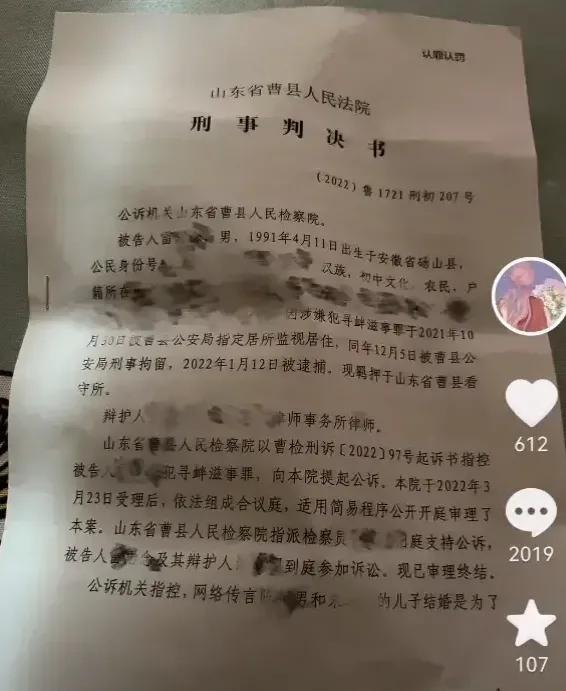 认罪认罚
山东省曹县人民法院
刑事判决书
(2022)鲁1721刑初207号
公诉机关山东省曹县人民检察院。
被告人 男,1991年4月11日出生于安徽省砀山县,
公民身份号 汉族,初中文化,农民,户
籍所在
因涉嫌犯寻衅滋事罪于2021年10
月30日被曹县公安局指定居所监视居住,同年12月5日被曹县公
安局刑事拘留,2022年1月12日被逮捕。现羁押于山东省曹县看
守所。
辩护人 律师事务所律师。
山东省曹县人民检察院以曹检刑诉〔2022〕97号起诉书指控
被告人 犯寻衅滋事罪,向本院提起公诉。本院于2022年3
月23日受理后,依法组成合议庭,适用简易程序公开开庭审理了
本案。山东省曹县人民检察院指派检察员 出庭支持公诉,
被告人 及其辩护人 到庭参加诉讼。现已审理终结。
公诉机关指控,网络传言 男和 的儿子结婚是为了
612
2019
107